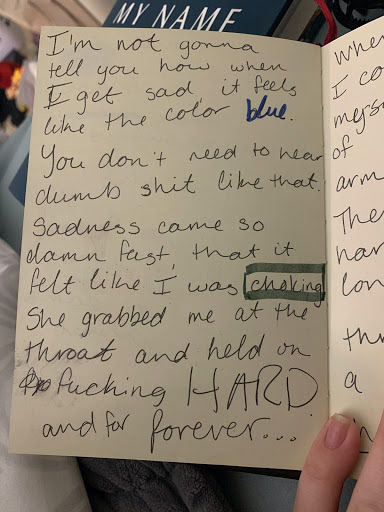 MY NAME
I'm not gonna
tell you how when
I get sad it feels
like the color blue.
You don't need to hear
dumb shit like that.
Sadness came so
damn fast, that it
felt like I was choking
She grabbed me at the
throat and held on
fucking HARD
and for forever...
when
I co
myse
of
arm
The
har
lon
thr
a